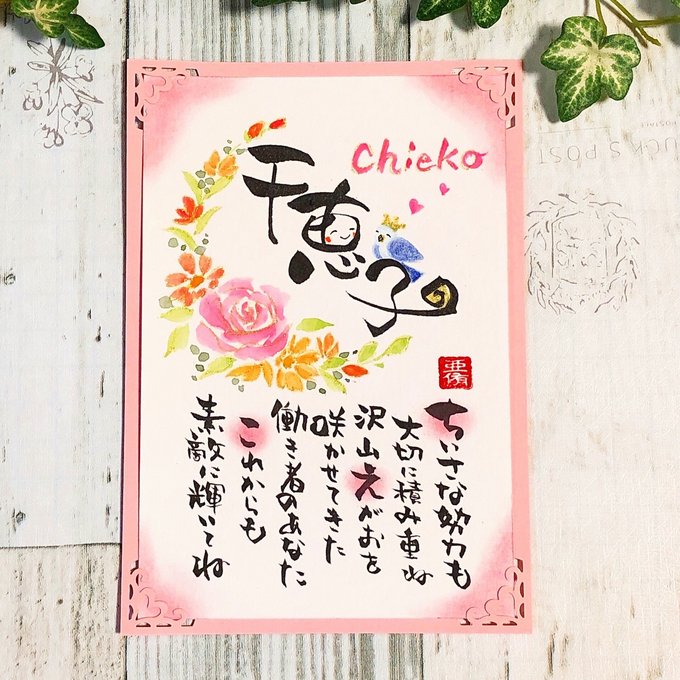 Chieko
千恵子
ちいさな努力も
大切に積み重ね
沢山えがおを
咲かせてきた
働き者のあなた
これからも
素敵に輝いてね